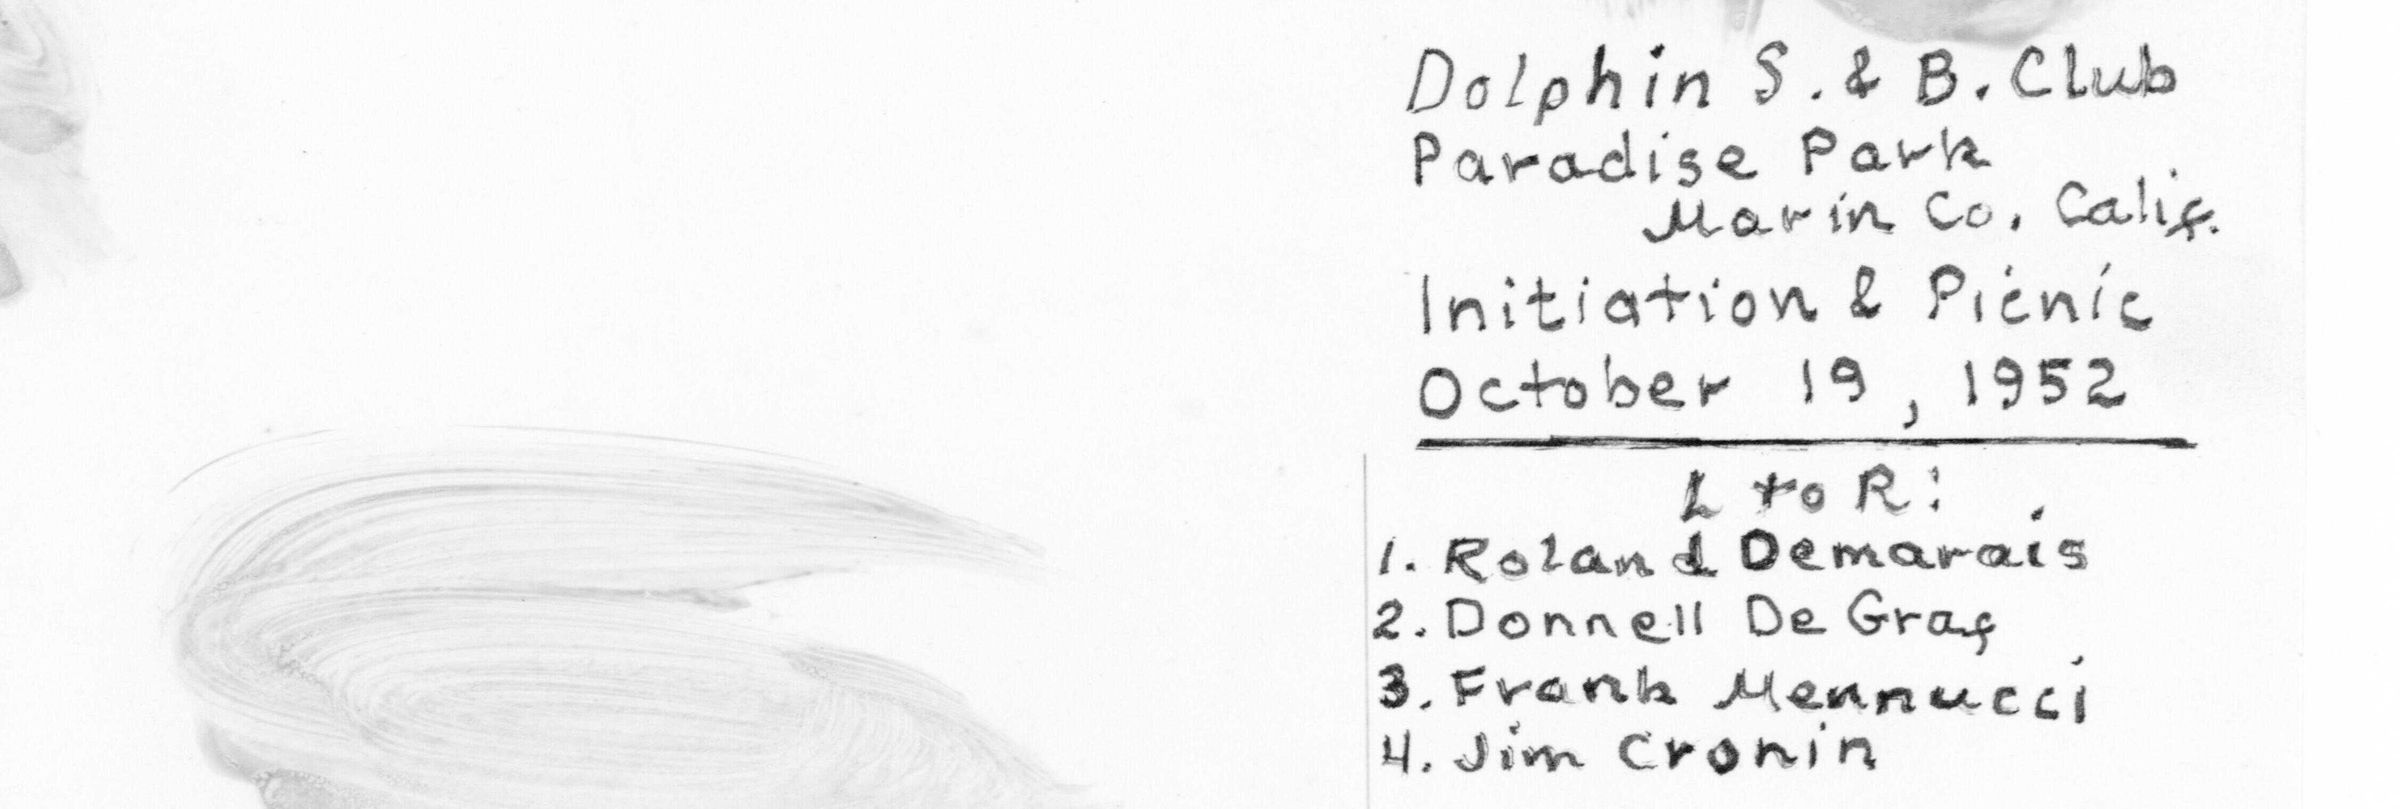 Dolphin S. & B. Club
Paradise Park
Marin Co. Calif.
Initiation & Picnic
October 19, 1952
L to R:
1. Roland Demarais
2. Donnell De Graf
3. Frank Mennucci
4. Jim Cronin